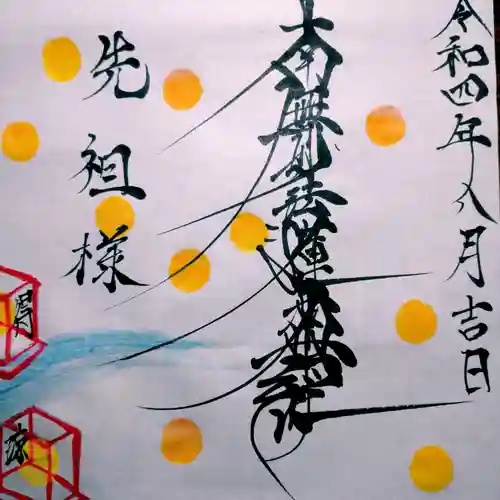 令和四年八月吉日
南無妙法蓮華経
先祖様
涼